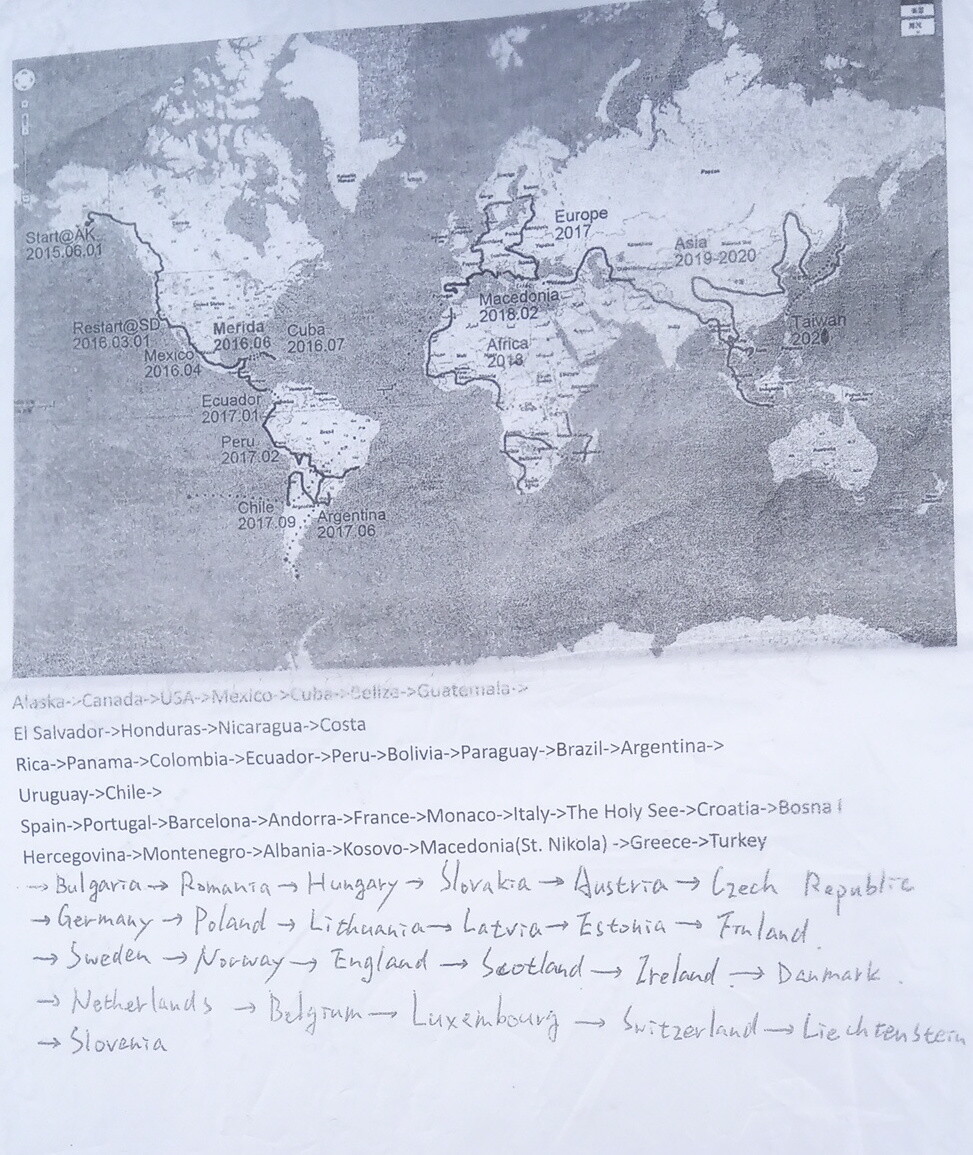 Start@AK
2015.06.01
Europe
2017
Asia
2019-2020
Macedonia
2018.02
Restart@SD
2016.03.01
Merida
2016.06
Cuba
2016.07
Mexico
2016.04
Africa
2018
Taiwan
Ecuador
2017.01
Peru
2017.02
Chile
2017.09
Argentina
2017.06
Alaska->Canada->USA->Mexico->Cuba->Belize->Guatemala->
El Salvador->Honduras->Nicaragua->Costa
Rica->Panama->Colombia->Ecuador->Peru->Bolivia->Paraguay->Brazil->Argentina->
Uruguay->Chile->
Spain->Portugal->Barcelona->Andorra->France->Monaco->Italy->The Holy See->Croatia->Bosna i
Hercegovina->Montenegro->Albania->Kosovo->Macedonia(St. Nikola) ->Greece->Turkey
→ Bulgaria → Romania → Hungary → Slovakia → Austria → Czech Republic
→ Germany → Poland → Lithuania → Latvia → Estonia → Finland
→ Sweden → Norway → England → Scotland → Ireland → Danmark
→ Netherlands → Belgium → Luxembourg → Switzerland → Liechtenstein
→ Slovenia